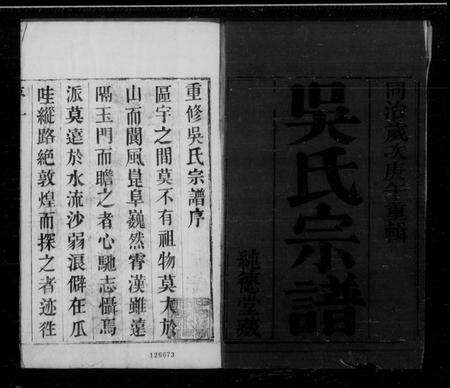 同治歲次庚午重輯
吳氏宗譜
種德堂藏
重修吳氏宗譜序
區宇之間莫不有祖物莫大於
山而閬風崑阜巍然霄漢雖遠
隔玉門而瞻之者心馳志懾焉
派莫遠於水流沙弱浪僻在瓜
哇縱路絶敦煌而探之者迹徃
126673